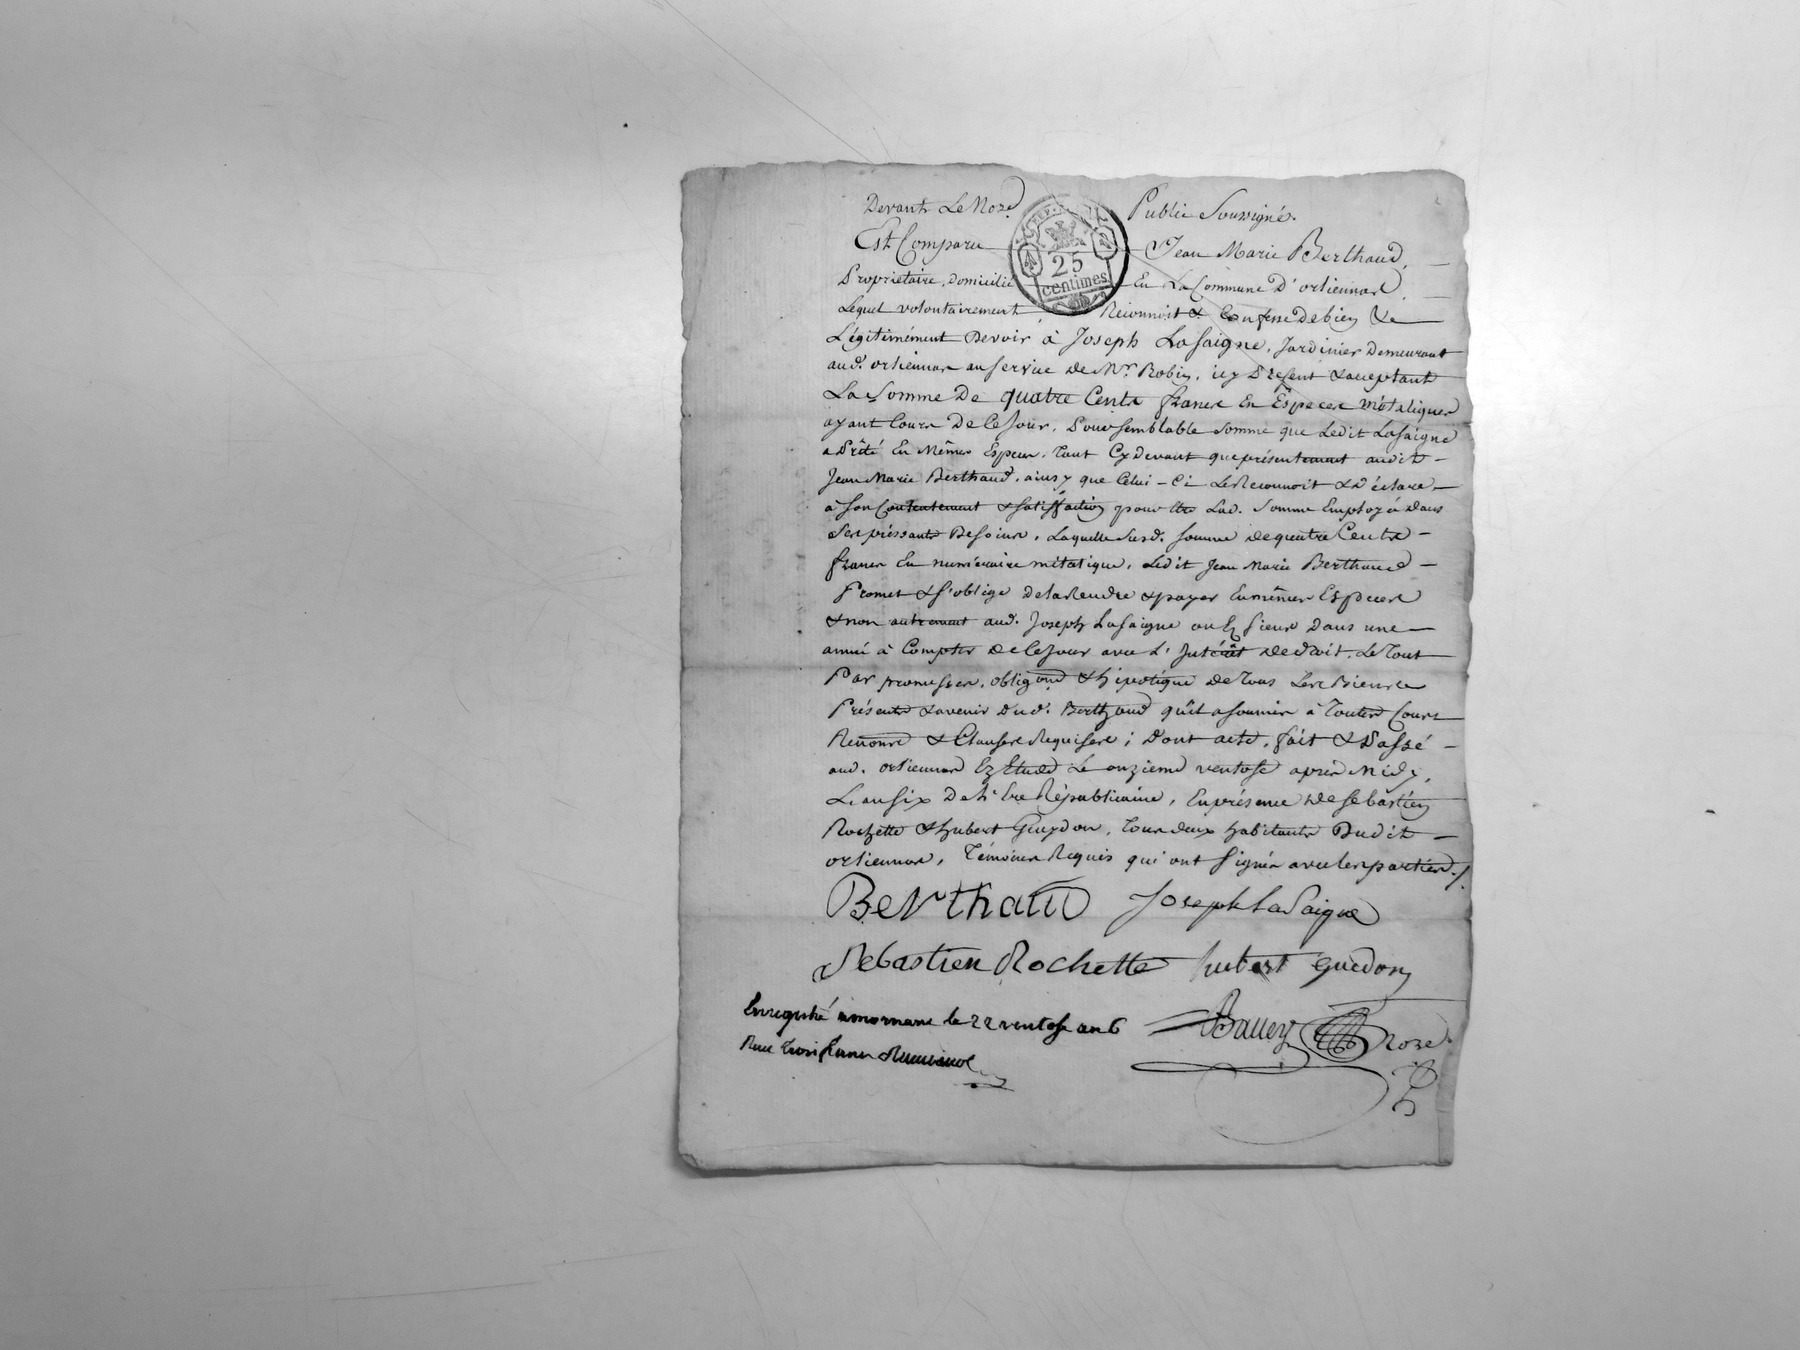 Devant Le Nore. Public Soussigné.
Est Comparu Jean Marie Berthaud,
Proprietaire, domicilié En La Commune D'orliennas,
Lequel volontairement Reconnoit & Confesse de bien &
Légitimément Devoir à Joseph Lasaigne, Jardinier Demeurant
aud. orliennas au service de Mr. Robin, icy Présent & acceptant
La Somme De quatre Cents francs En Especes Métaliques
ayant Cours De Ce Jour, Pour semblable somme que Ledit Lasaigne
a Prêté En Mêmes Especes, tant Cy devant que présentement audit
Jean Marie Berthaud, ainsy que Celui-Ci Le Reconnoit & Déclare
à Son Contentement & satisfaction pour Lad. Somme Employé dans
Ses préssants Besoins, Laquelle susd. somme de quatre Cents
francs En numéraire mètalique, Ledit Jean Marie Berthaud
Promet & s'oblige De la Rendre & payer En mêmes Especes
& non autrement aud. Joseph Lasaigne ou Es siens Dans une
année à Compter de Ce Jour avec L'Intérêt de droit, Le Tout
Par promesses, obligons & hipotéque De Tous Ses Biens
Présents & avenir Dud. Berthaud qu'il a soumis à Toutes Cours
Renons & Clauses Requises; Dont acte, fait & Passé
aud. orliennas Ez Etude Le onzieme ventose après Midy,
L'an six De L'Ere Républicaine, En présence de sebastien
Rochette & hubert Guydon, Tous deux habitants Dudit
orliennas, Témoins Requis qui ont signés avec les parties./.
Berthaud Joseph LaSaigne
Sebastien Rochette hubert Guedon
Enregistré a mornant le 22 ventose an 6 Nore
Reçu trois francs
25
centimes